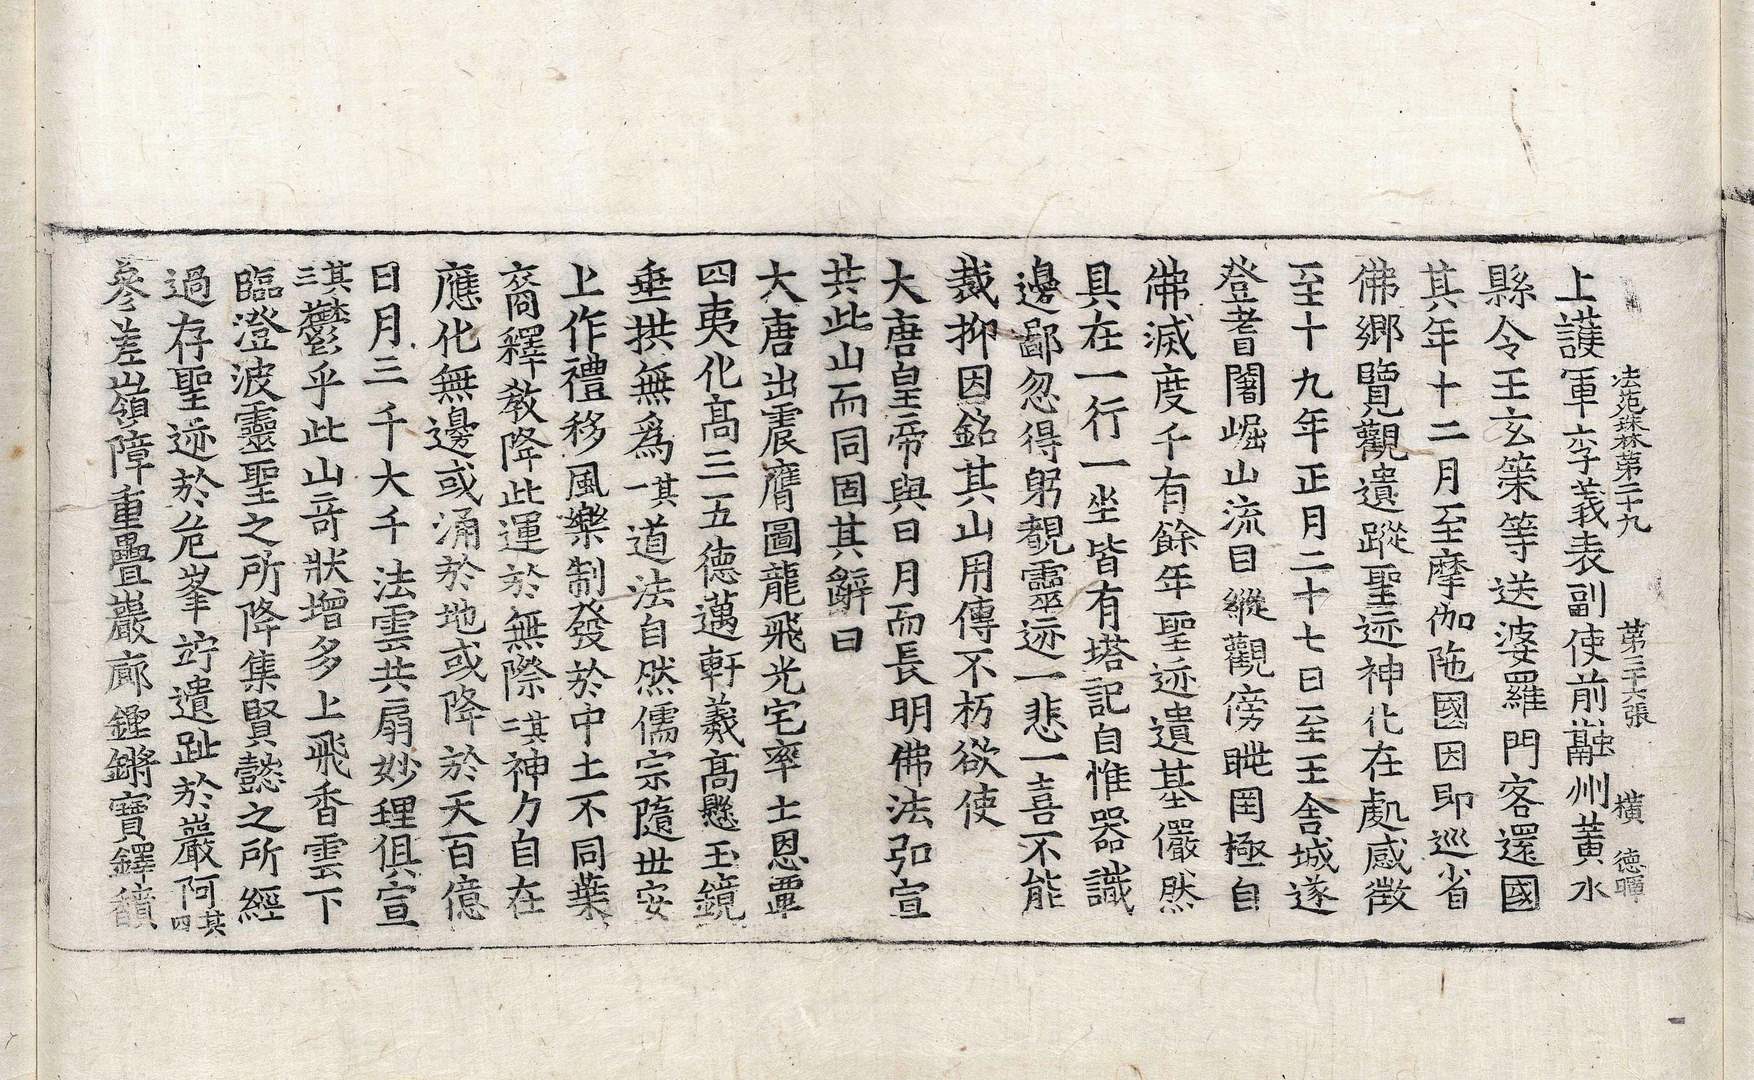 法苑珠林第二十九 第三十六張 橫 德暉
上護軍李義表副使前融州黃水
縣令王玄策等送婆羅門客還國
其年十二月至摩伽陁國因即巡省
佛鄉覽觀遺蹤聖迹神化在處感徵
至十九年正月二十七日至王舍城遂
登耆闍崛山流目縱觀傍眺罔極自
佛滅度千有餘年聖迹遺基儼然
具在一行一坐皆有塔記自惟器識
邊鄙忽得躬覩靈迹一悲一喜不能
裁抑因銘其山用傳不朽欲使
大唐皇帝與日月而長明佛法弘宣
共此山而同固其辭曰
大唐出震膺圖龍飛光宅率土恩覃
四夷化高三五德邁軒羲高懸玉鏡
垂拱無為其一道法自然儒宗隨世安
上作禮移風樂制發於中土不同葉
裔釋教降此運於無際其二神力自在
應化無邊或涌於地或降於天百億
日月三千大千法雲共扇妙理俱宣
其三鬱乎此山奇狀增多上飛香雲下
臨澄波靈聖之所降集賢懿之所經
過存聖迹於危峯竚遺趾於巖阿其四
參差嶺障重疊巖廊鏗鏘寶鐸